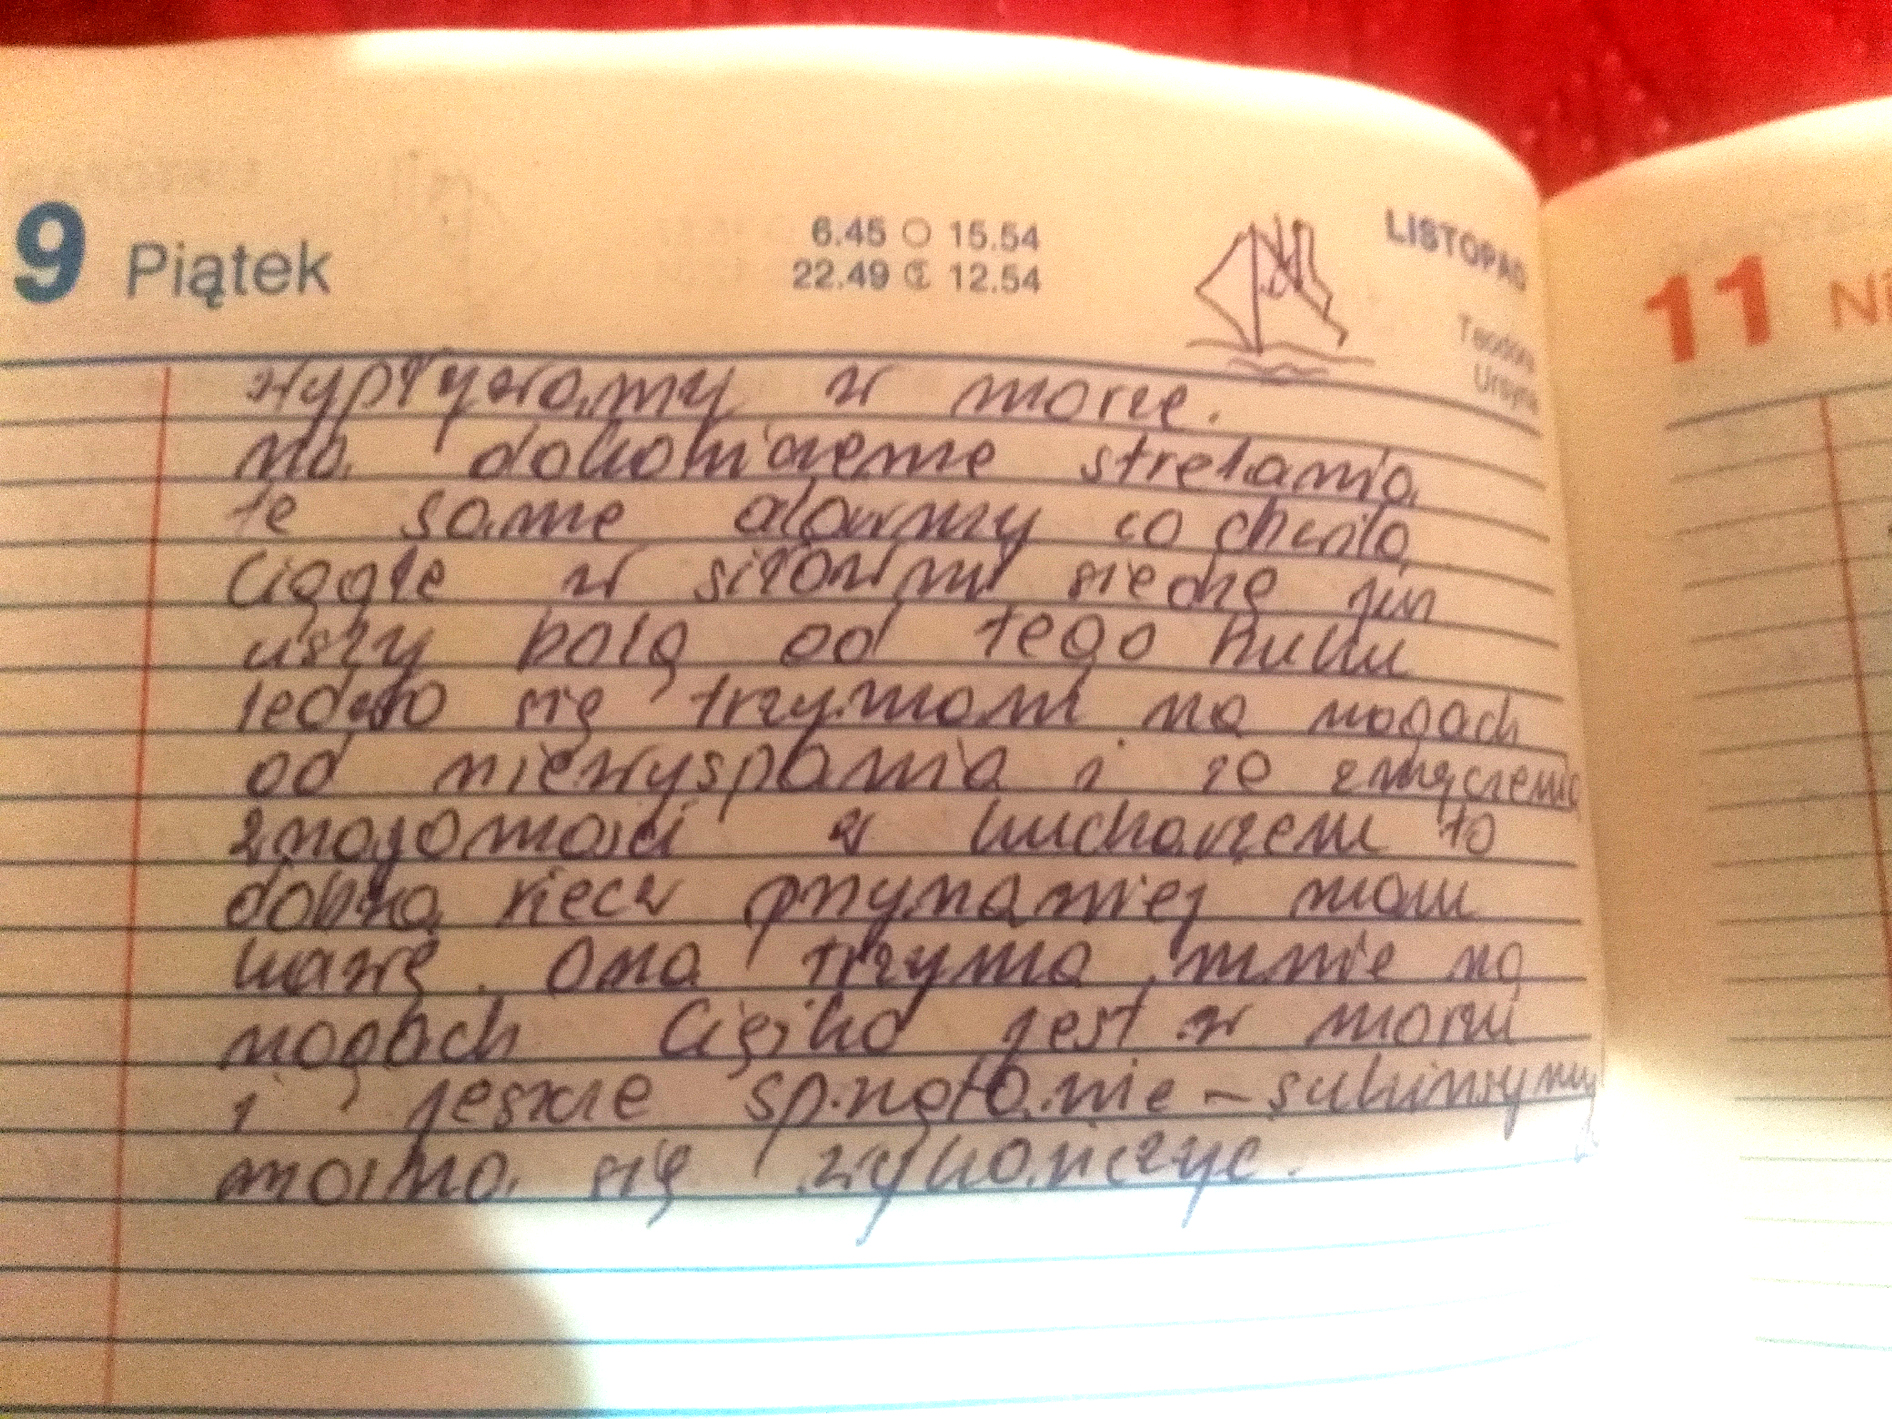 9 Piątek
6.45 15.54
22.49 12.54
LISTOPAD
Teodora
Ursyna
11 Ni
wypływamy w morze.
na dokończenie strelania
te same alarmy co chwila
Ciągle w siłowni siedzę jur
uszy bolą od tego huku
ledwo się trzymam na nogach
od niewyspania i ze zmęczenia
znajomości w kucharzem to
dobra rzecz przynamniej mam
kawę. Ona trzyma mnie na
nogach Ciężko jest w morzu
i jeszcze sprzątanie - sukinsyny
można się wykończyć.